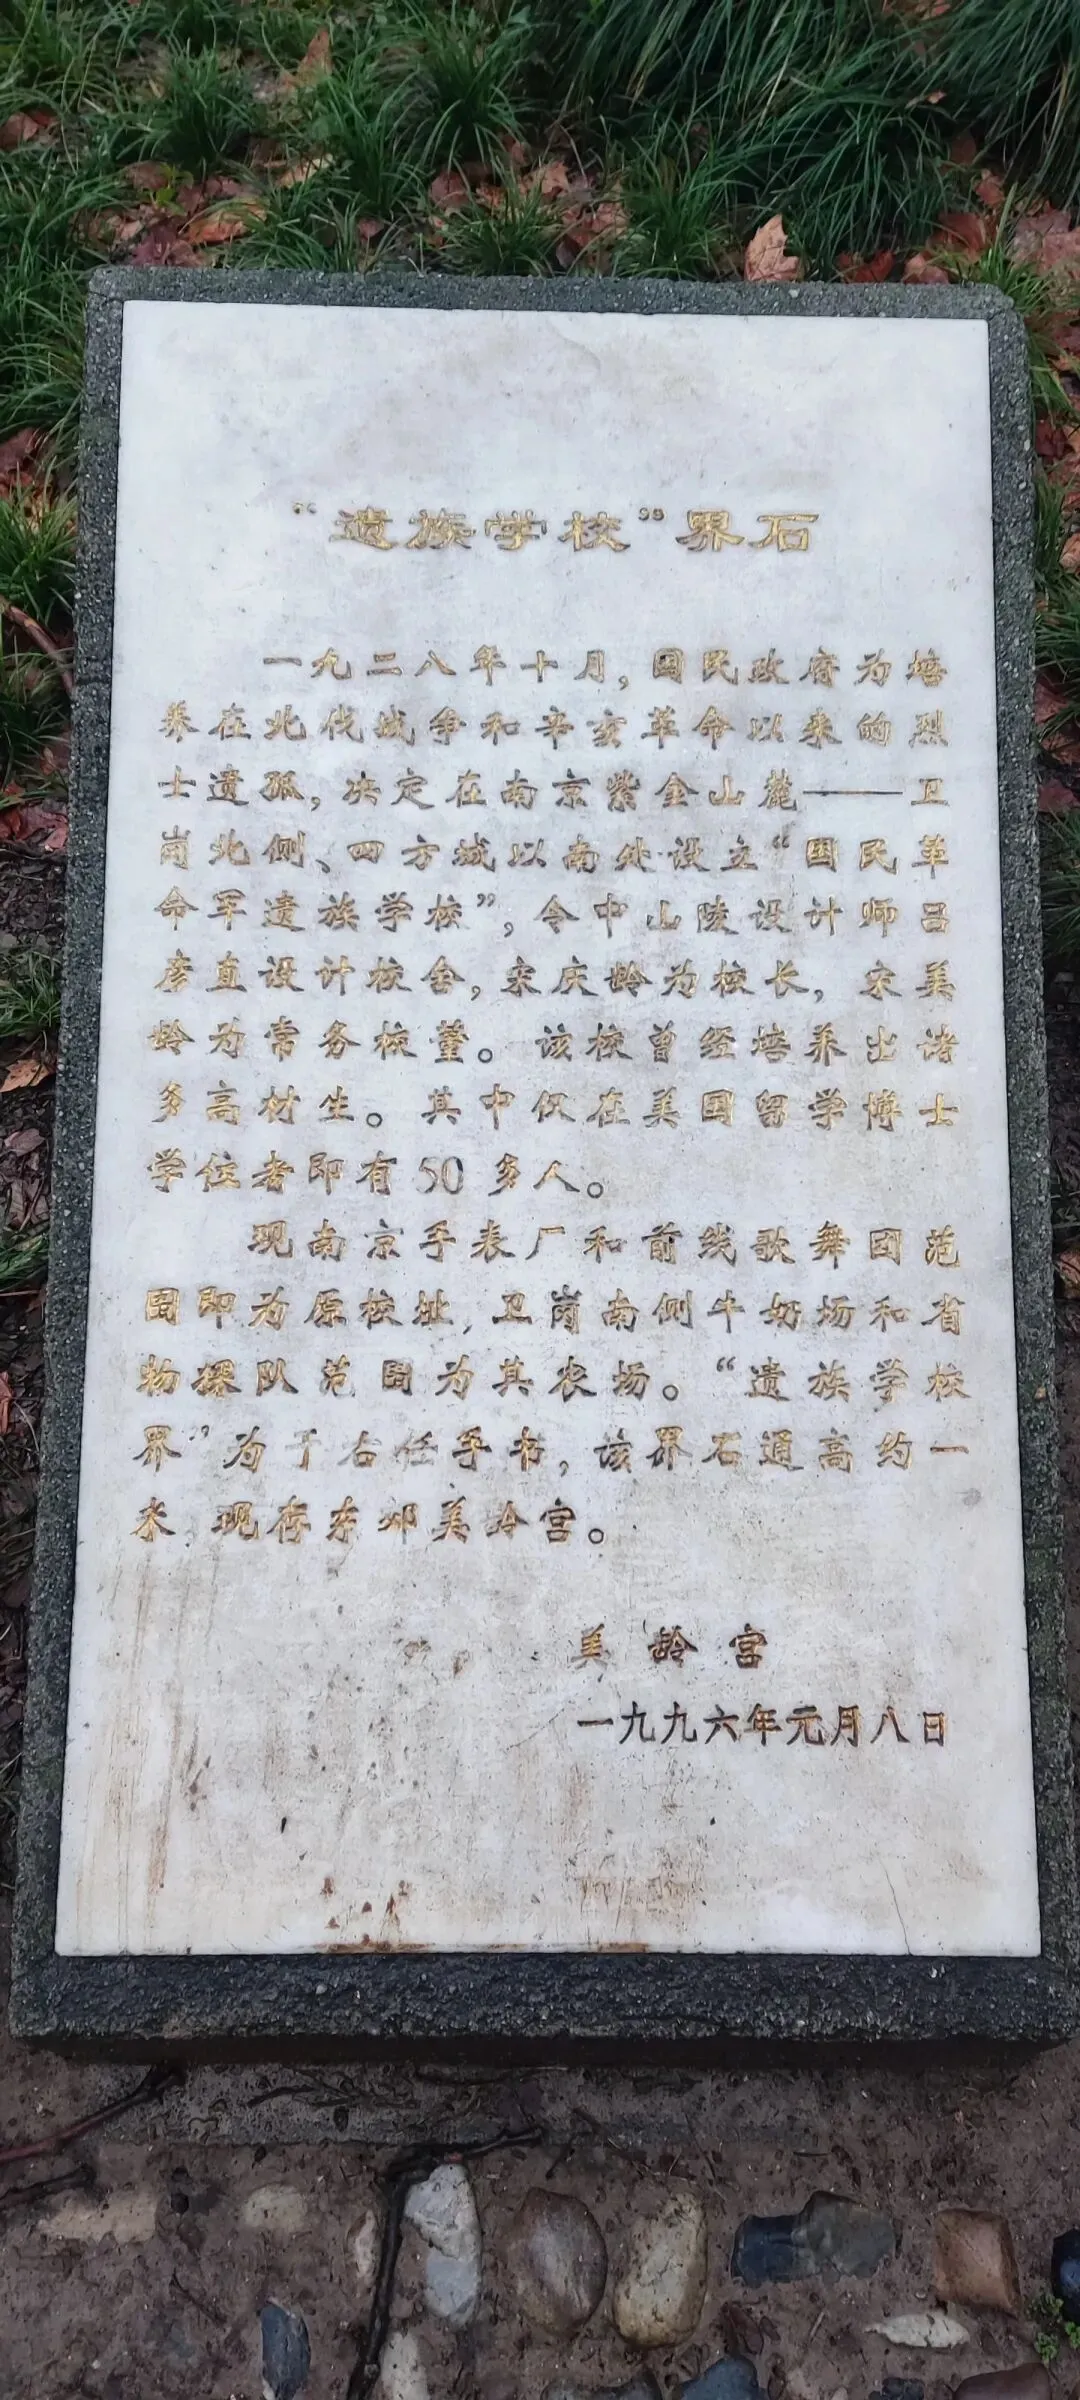 “遗族学校”界石
一九二八年十月，国民政府为培
养在北伐战争和辛亥革命以来的烈
士遗孤，决定在南京紫金山麓——卫
岗北侧、四方城以南处设立“国民革
命军遗族学校”，令中山陵设计师吕
彦直设计校舍，宋庆龄为校长，宋美
龄为常务校董。该校曾经培养出诸
多高材生。其中仅在美国留学博士
学位者即有50多人。
现南京手表厂和前线歌舞团范
围即为原校址，卫岗南侧牛奶场和省
物探队范围为其农场。“遗族学校
界”为于右任手书，该界石通高约一
米 现存东郊美龄宫。
美龄宫
一九九六年元月八日